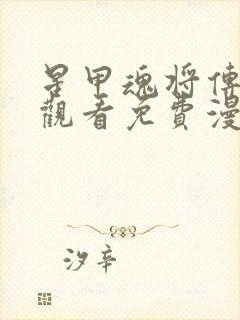 星甲魂將傳
觀看免費漫
汐辛